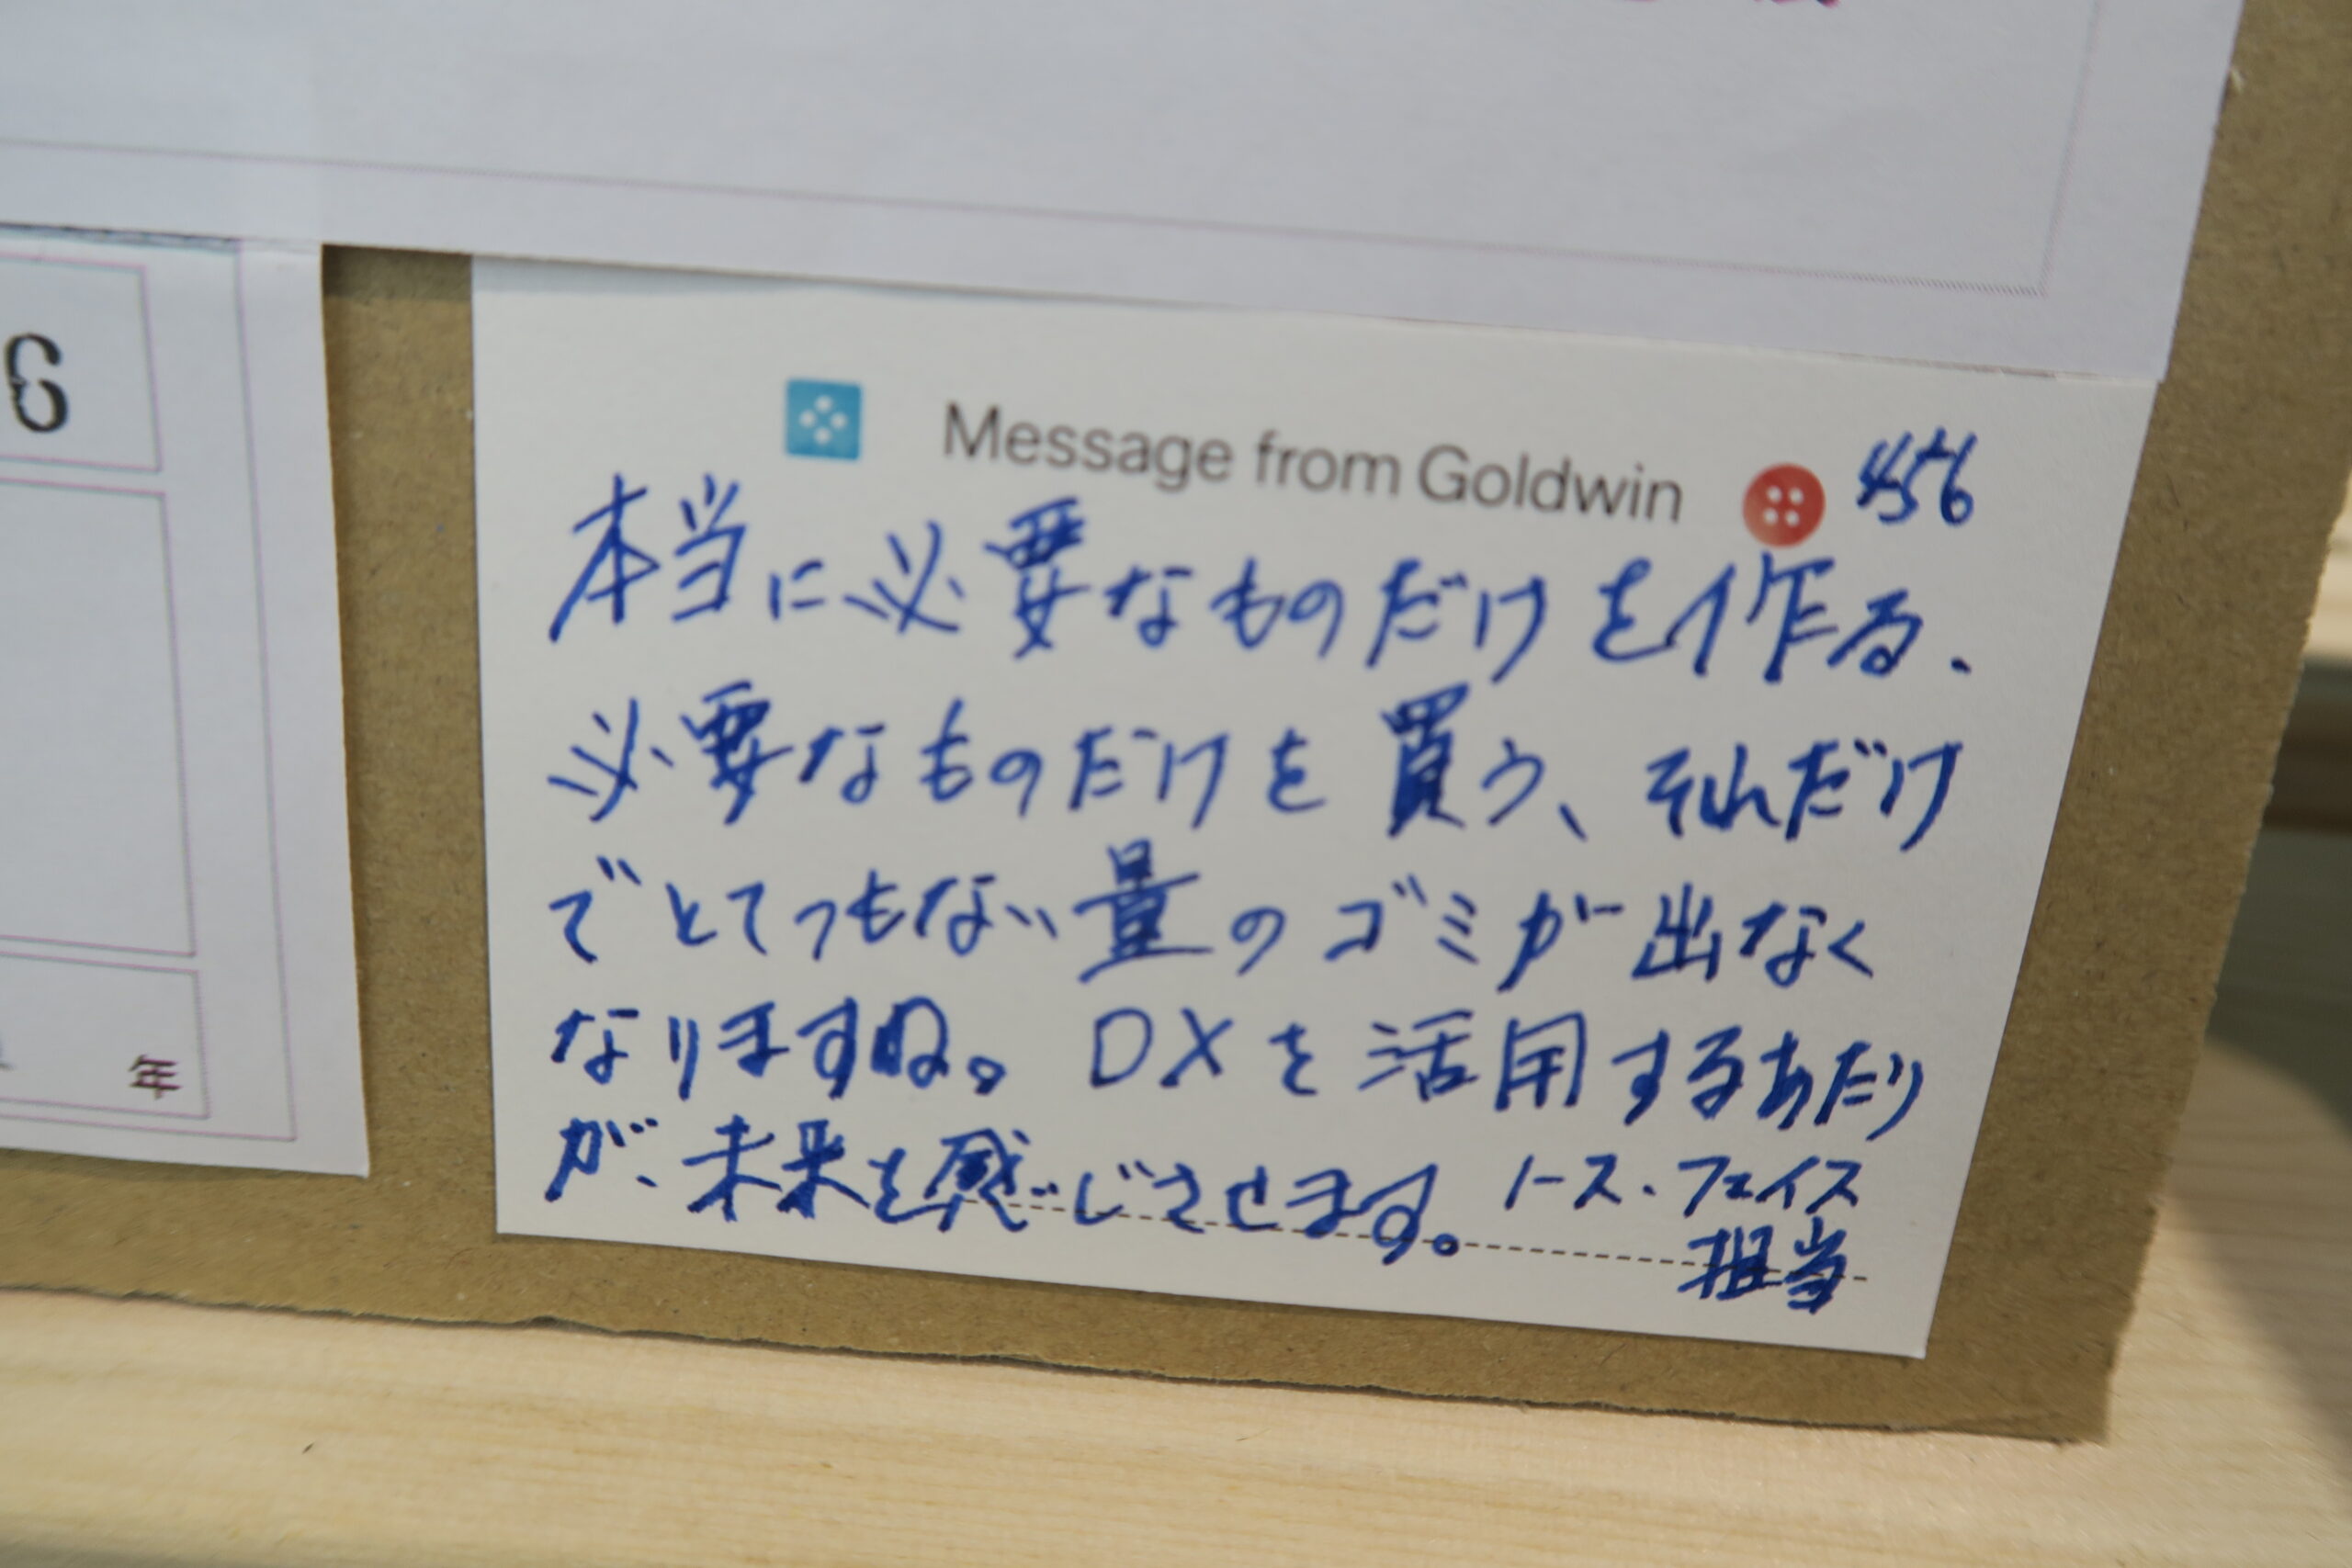 6
年
Message from Goldwin
456
本当に必要なものだけを作る、
必要なものだけを買う、それだけ
でとてつもない量のゴミが出なく
なりますね。DXを活用するあたり
が、未来を感じさせます。
ノース・フェイス
担当